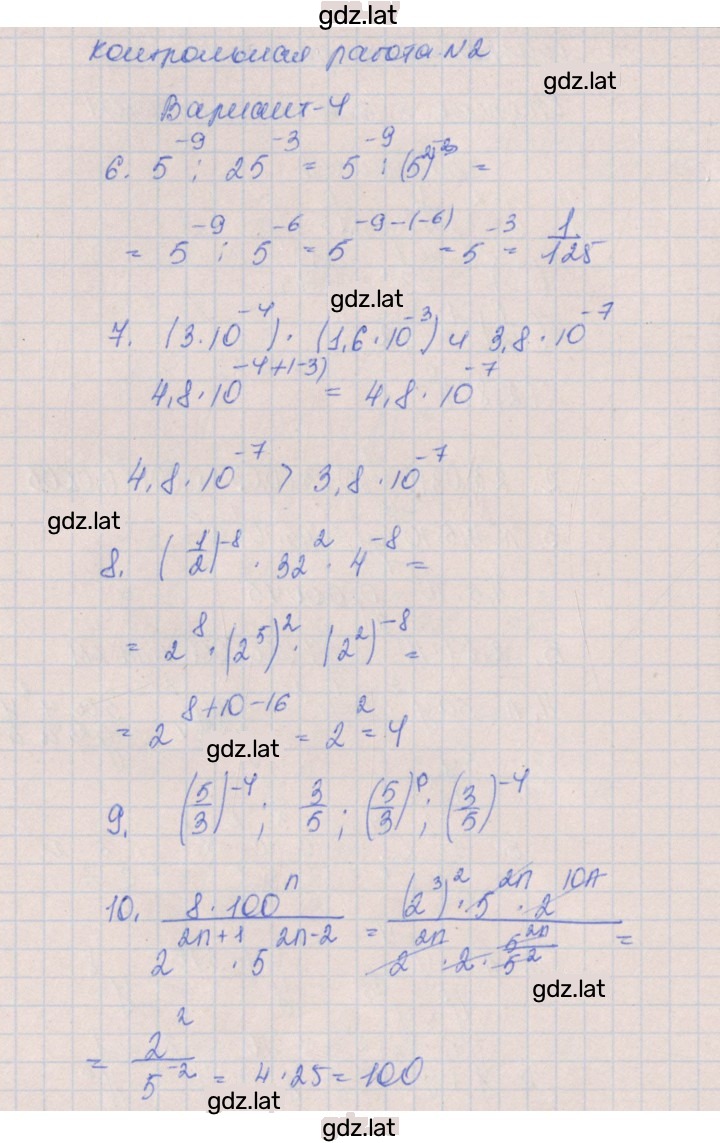 gdz.lat
Контрольная работа N2
gdz.lat
Вариант-4
6. 5^-9 : 25^-3 = 5^-9 : (5^2)^-3 =
= 5^-9 : 5^-6 = 5^-9-(-6) = 5^-3 = 1/125
gdz.lat
7. (3·10^-4)·(1,6·10^-3) и 3,8·10^-7
4,8·10^-4+(-3) = 4,8·10^-7
4,8·10^-7 > 3,8·10^-7
gdz.lat
8. (1/2)^-8 · 32^2 · 4^-8 =
= 2^8 · (2^5)^2 · (2^2)^-8 =
= 2^8+10-16 = 2^2 = 4
gdz.lat
9. (5/3)^-4; 3/5; (5/3)^0; (3/5)^-4
10. 8·100^n / 2^2n+1 · 5^2n-2 = (2^3)^2 · 5^2n · 2^10n / 2^2n · 2 · 5^2n/5^2 =
gdz.lat
= 2^2/5^-2 = 4·25 = 100
gdz.lat
gdz.lat